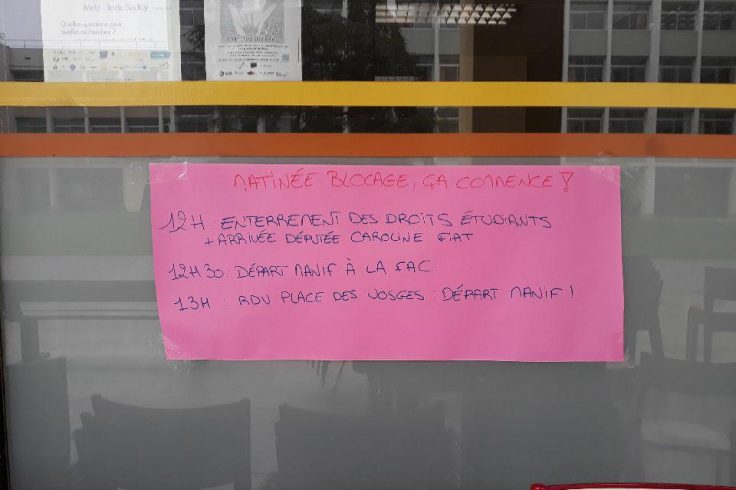 Metz - Île du Saulcy
Quelles questions pour
quelles recherches ?
MATINÉE BLOCAGE, ÇA COMMENCE !
12H : ENTERREMENT DES DROITS ÉTUDIANTS
+ ARRIVÉE DÉPUTÉE CAROLINE FIAT
12H30 : DÉPART MANIF À LA FAC
13H : RDV PLACE DES VOSGES : DÉPART MANIF !